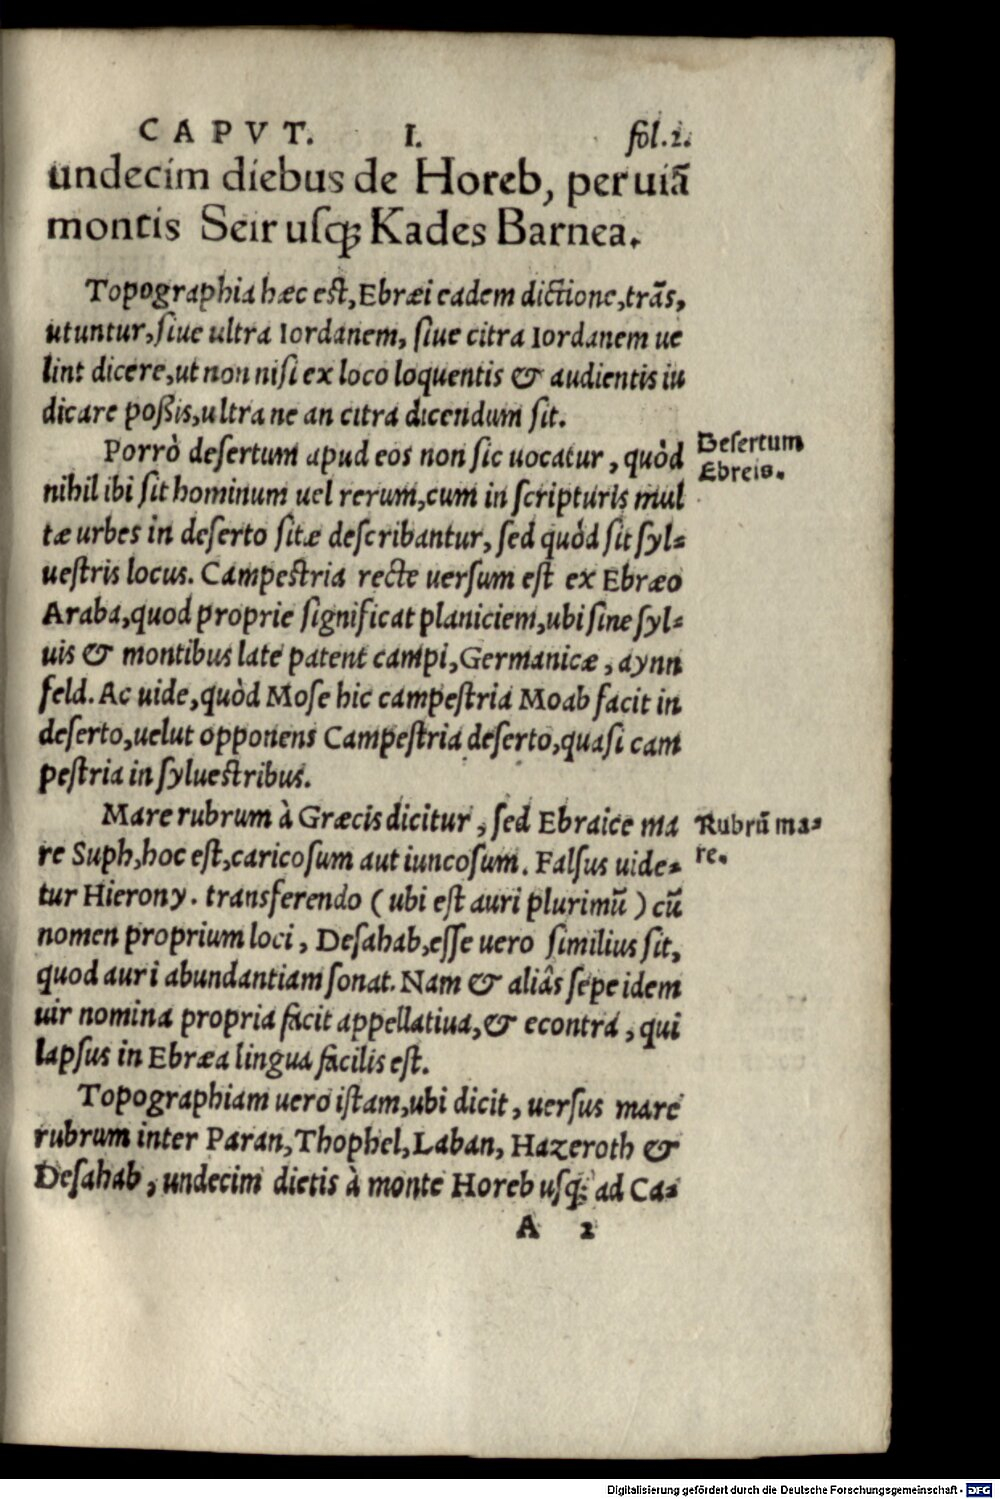 CAPVT. I. fol.1.
undecim diebus de Horeb, per uiã
montis Seir uſqꝫ Kades Barnea.
Topographia hæc eſt, Ebræi eadem dictione, trãs,
utuntur, ſiue ultra Iordanem, ſiue citra Iordanem ue
lint dicere, ut non niſi ex loco loquentis & audientis iu
dicare poßis, ultra ne an citra dicendum ſit.
Porrò deſertum apud eos non ſic uocatur, quòd
Deſertum
Ebreis.
nihil ibi ſit hominum uel rerum, cum in ſcripturis mul
tæ urbes in deſerto ſitæ deſcribantur, ſed quòd ſit ſyl-
ueſtris locus. Campeſtria recte uerſum eſt ex Ebræo
Araba, quod proprie ſignificat planiciem, ubi ſine ſyl-
uis & montibus late patent campi, Germanicæ, aynn
feld. Ac uide, quòd Moſe hic campeſtria Moab facit in
deſerto, uelut opponens Campeſtria deſerto, quaſi cam
peſtria in ſylueſtribus.
Mare rubrum à Græcis dicitur, ſed Ebraice ma
Rubrũ ma-
re.
re Suph, hoc eſt, caricoſum aut iuncoſum. Falſus uide-
tur Hierony. transferendo (ubi eſt auri plurimũ) cũ
nomen proprium loci, Deſahab, eſſe uero ſimilius ſit,
quod auri abundantiam ſonat. Nam & aliâs ſepe idem
uir nomina propria facit appellatiua, & econtra, qui
lapſus in Ebræa lingua facilis eſt.
Topographiam uero iſtam, ubi dicit, uerſus mare
rubrum inter Paran, Thophel, Laban, Hazeroth &
Deſahab, undecim dietis à monte Horeb uſqꝫ ad Ca-
A 2
Digitalisierung gefördert durch die Deutsche Forschungsgemeinschaft - DFG